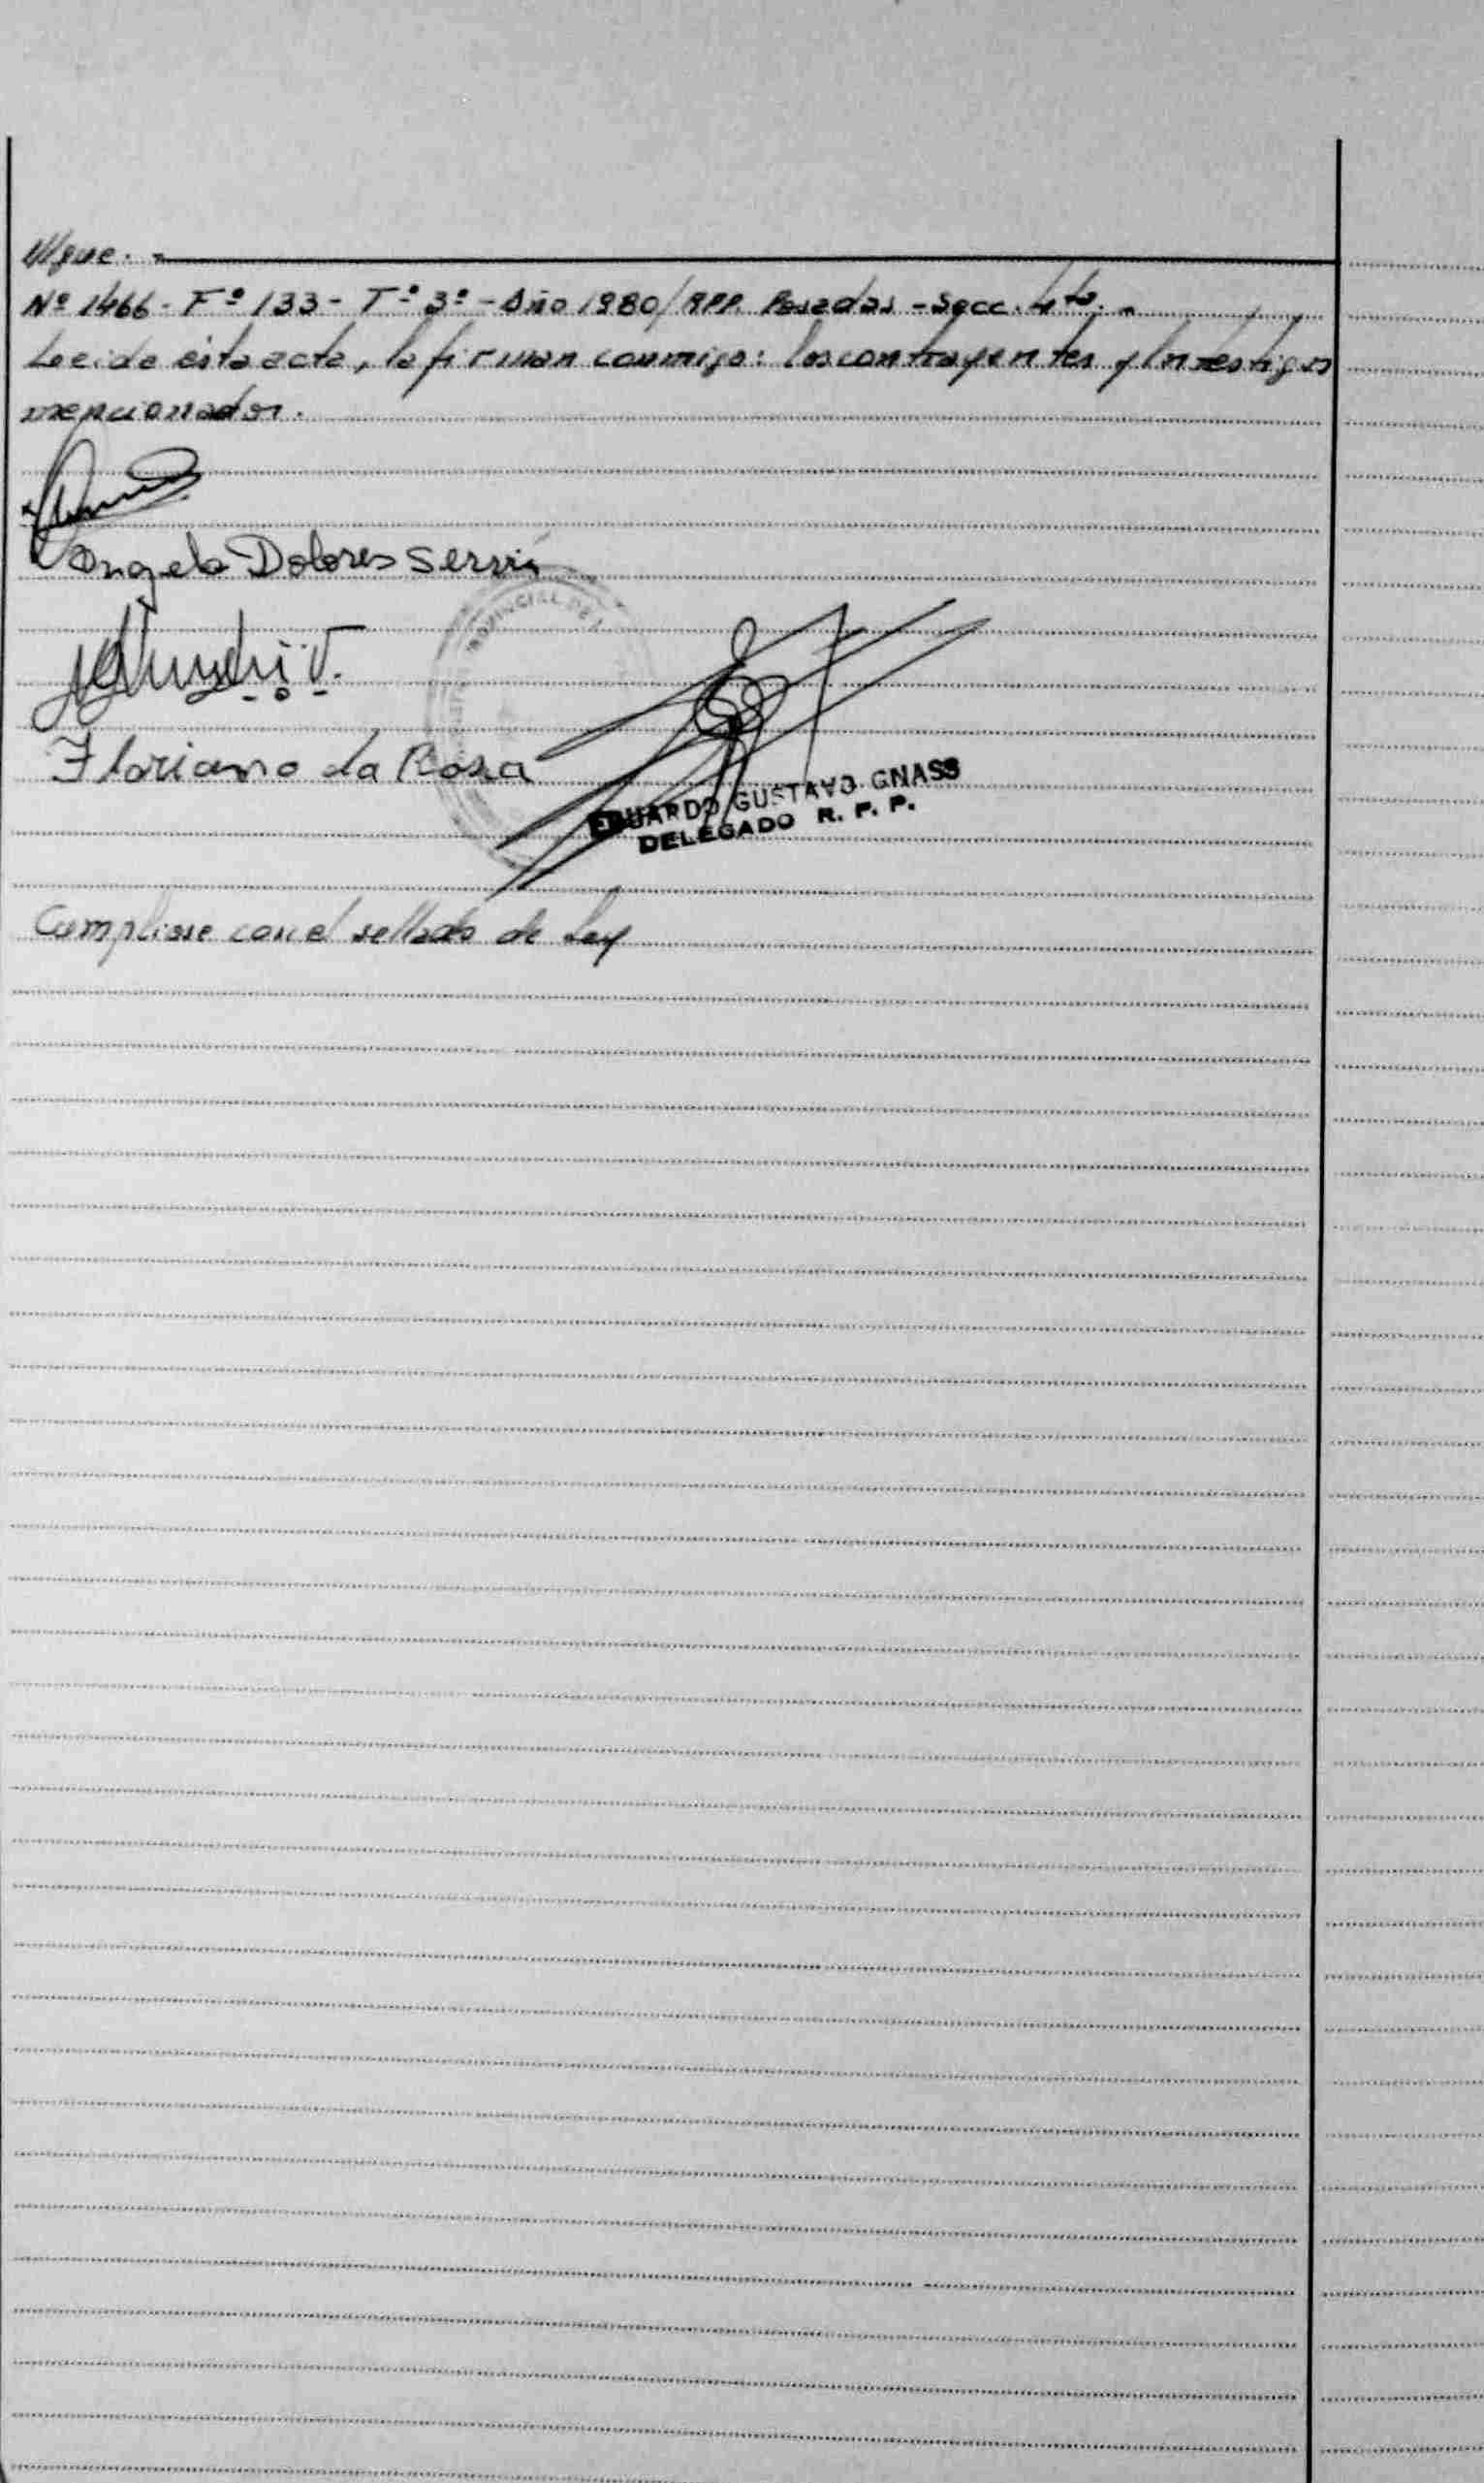 Nº 1466 - Fº 133 - Tº 3º - Año 1980/RPP. Posadas - Secc. 4ta. -
Leída esta acta, la firman conmigo: los contrayentes y los testigos
mencionados.
Angela Dolores Servín
Floriano da Rosa
EDUARDO GUSTAVO GNASS
DELEGADO R. P. P.
Cumplióse con el sellado de Ley